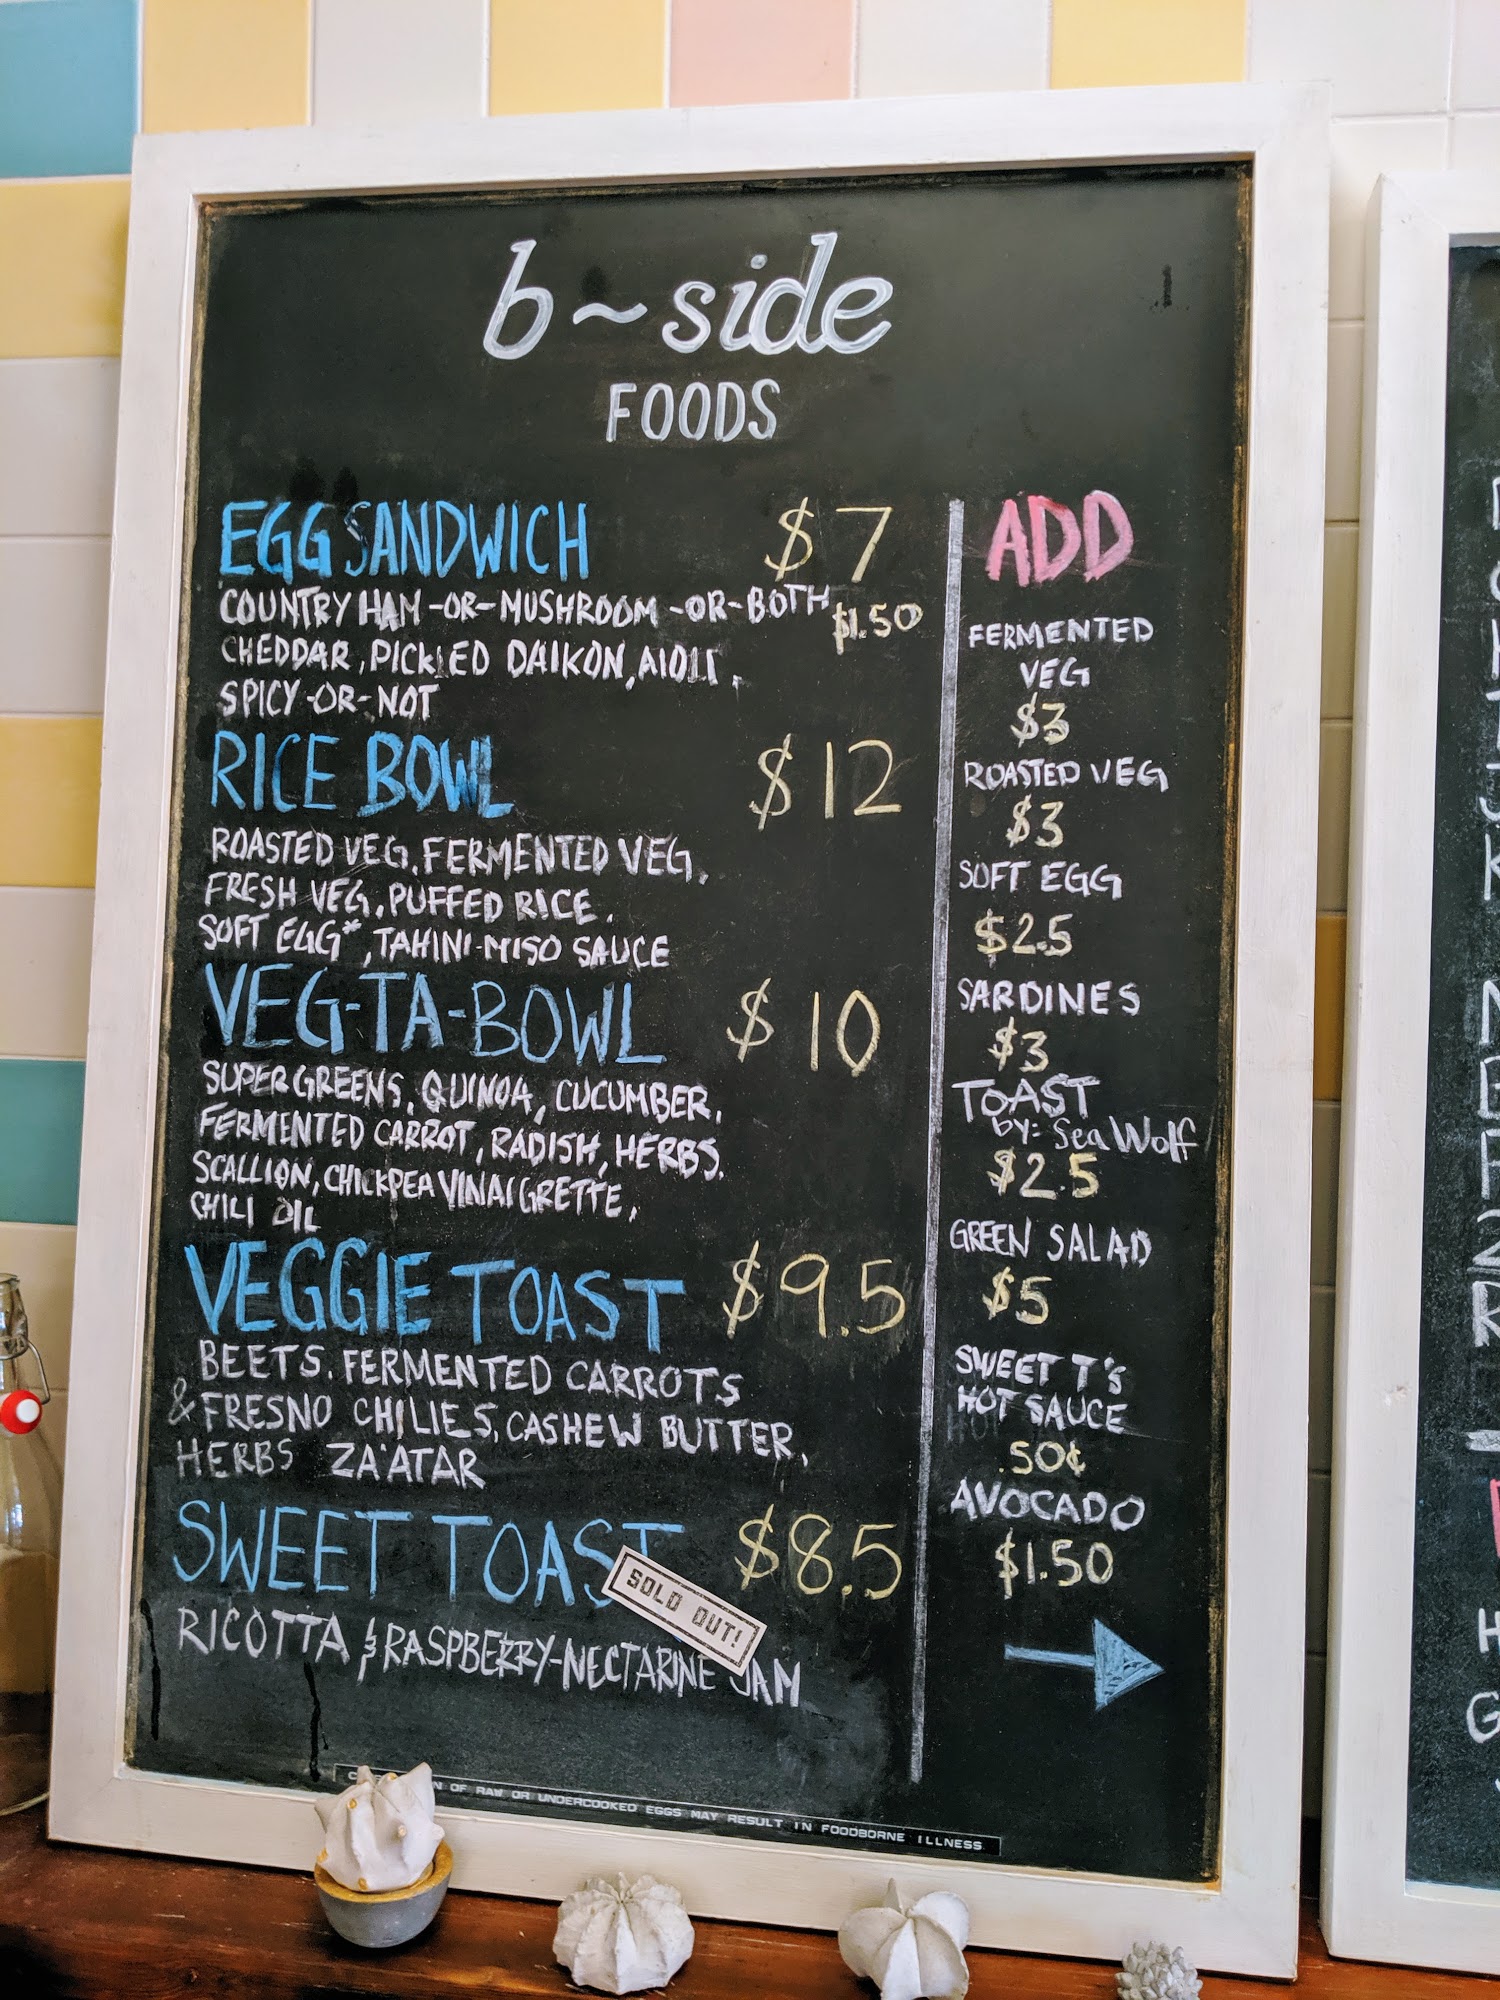 b~side
FOODS
EGG SANDWICH $7
COUNTRY HAM -OR- MUSHROOM -OR- BOTH $1.50
CHEDDAR, PICKLED DAIKON, AIOLI,
SPICY -OR- NOT
RICE BOWL $12
ROASTED VEG, FERMENTED VEG,
FRESH VEG, PUFFED RICE,
SOFT EGG*, TAHINI-MISO SAUCE
VEG-TA-BOWL $10
SUPER GREENS, QUINOA, CUCUMBER,
FERMENTED CARROT, RADISH, HERBS,
SCALLION, CHICKPEA VINAIGRETTE,
CHILI OIL
VEGGIE TOAST $9.5
BEETS, FERMENTED CARROTS
& FRESNO CHILIES, CASHEW BUTTER,
HERBS ZA'ATAR
SWEET TOAST $8.5
SOLD OUT!
RICOTTA & RASPBERRY-NECTARINE JAM
ADD
FERMENTED
VEG
$3
ROASTED VEG
$3
SOFT EGG
$2.5
SARDINES
$3
TOAST
by: Sea Wolf
$2.5
GREEN SALAD
$5
SWEET T's
HOT SAUCE
.50¢
AVOCADO
$1.50
OF RAW OR UNDERCOOKED EGGS MAY RESULT IN FOODBORNE ILLNESS